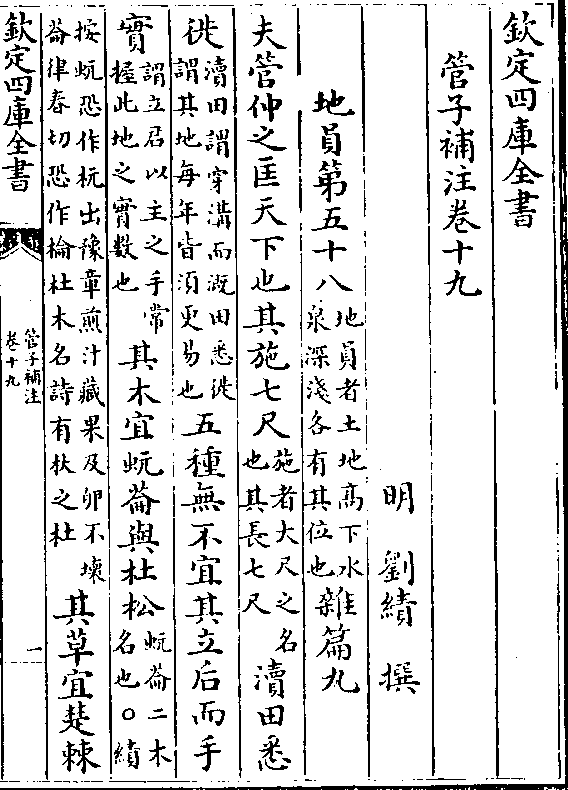 欽定四庫全書
管子補注卷十九
明 劉績 撰
地員第五十八
地員者土地高下水
泉深淺各有其位也
雜篇九
夫管仲之匡天下也其施七尺
施者大尺之名
也其長七尺
瀆田悉
徙
瀆田謂穿溝而溉田悉徙
謂其地每年皆須更易也
五種無不宜其立后而手
實
謂立君以主之手常
握此地之實數也
其木宜蚖菕與杜松
蚖菕二木
名也○績
按蚖恐作杬出豫章煎汁藏果及卵不壞
菕律春切恐作棆杜木名詩有杕之杜
其草宜楚棘
欽定四庫全書
管子補注
卷十九
一